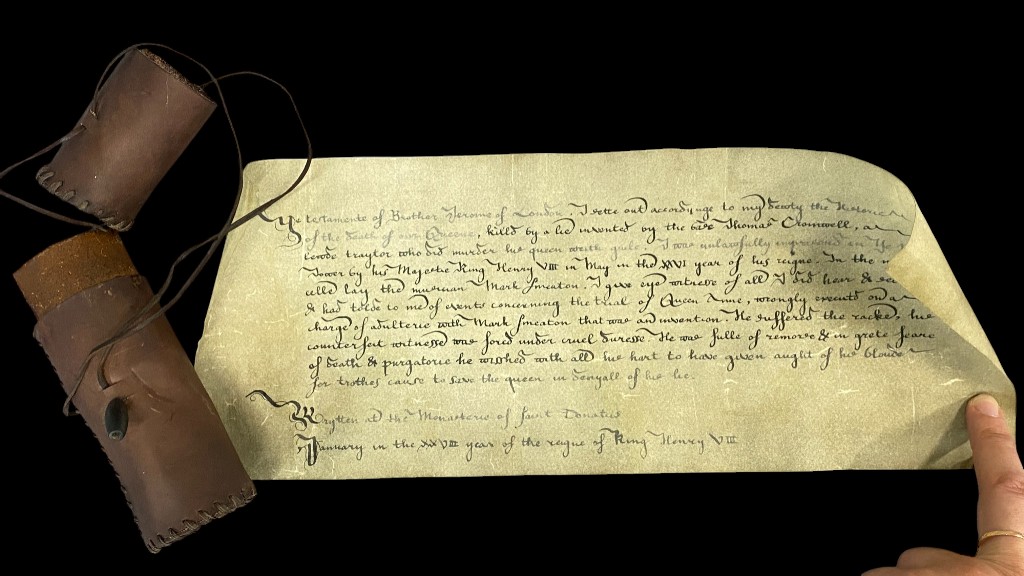 Ye testamente of Brother Jerome of London. I sette out accordynge to my decoty the Historie
of the death of our Queene, kill'd by a lie invented by the base Thomas Cromwell, a
lewde traytor who did murder hie queen with guile. I was unlawfully imprisoned in the
Tower by his Majestie King Henry VIII in May in the XXVI year of his reigne. In the
celle lay the musician Mark Smeaton. I give eye witness of all I did hear &
& had tolde to me of events concerning the trial of Queen Anne, wrongly executed on a
charge of adulterie with Mark Smeaton that was an invention. He suffered the racke, hie
counterfeit witnesse was forced under cruel duresse. He was fulle of remorse & in grete feare
of death & purgatorie he wisshed with all hie hart to have given aught of hie bloude
for trothes cause to save the queen in denyall of hie lie.
Wrytten at the Monasterie of Saint Donatus
January in the XXVIII year of the reigne of King Henry VIII